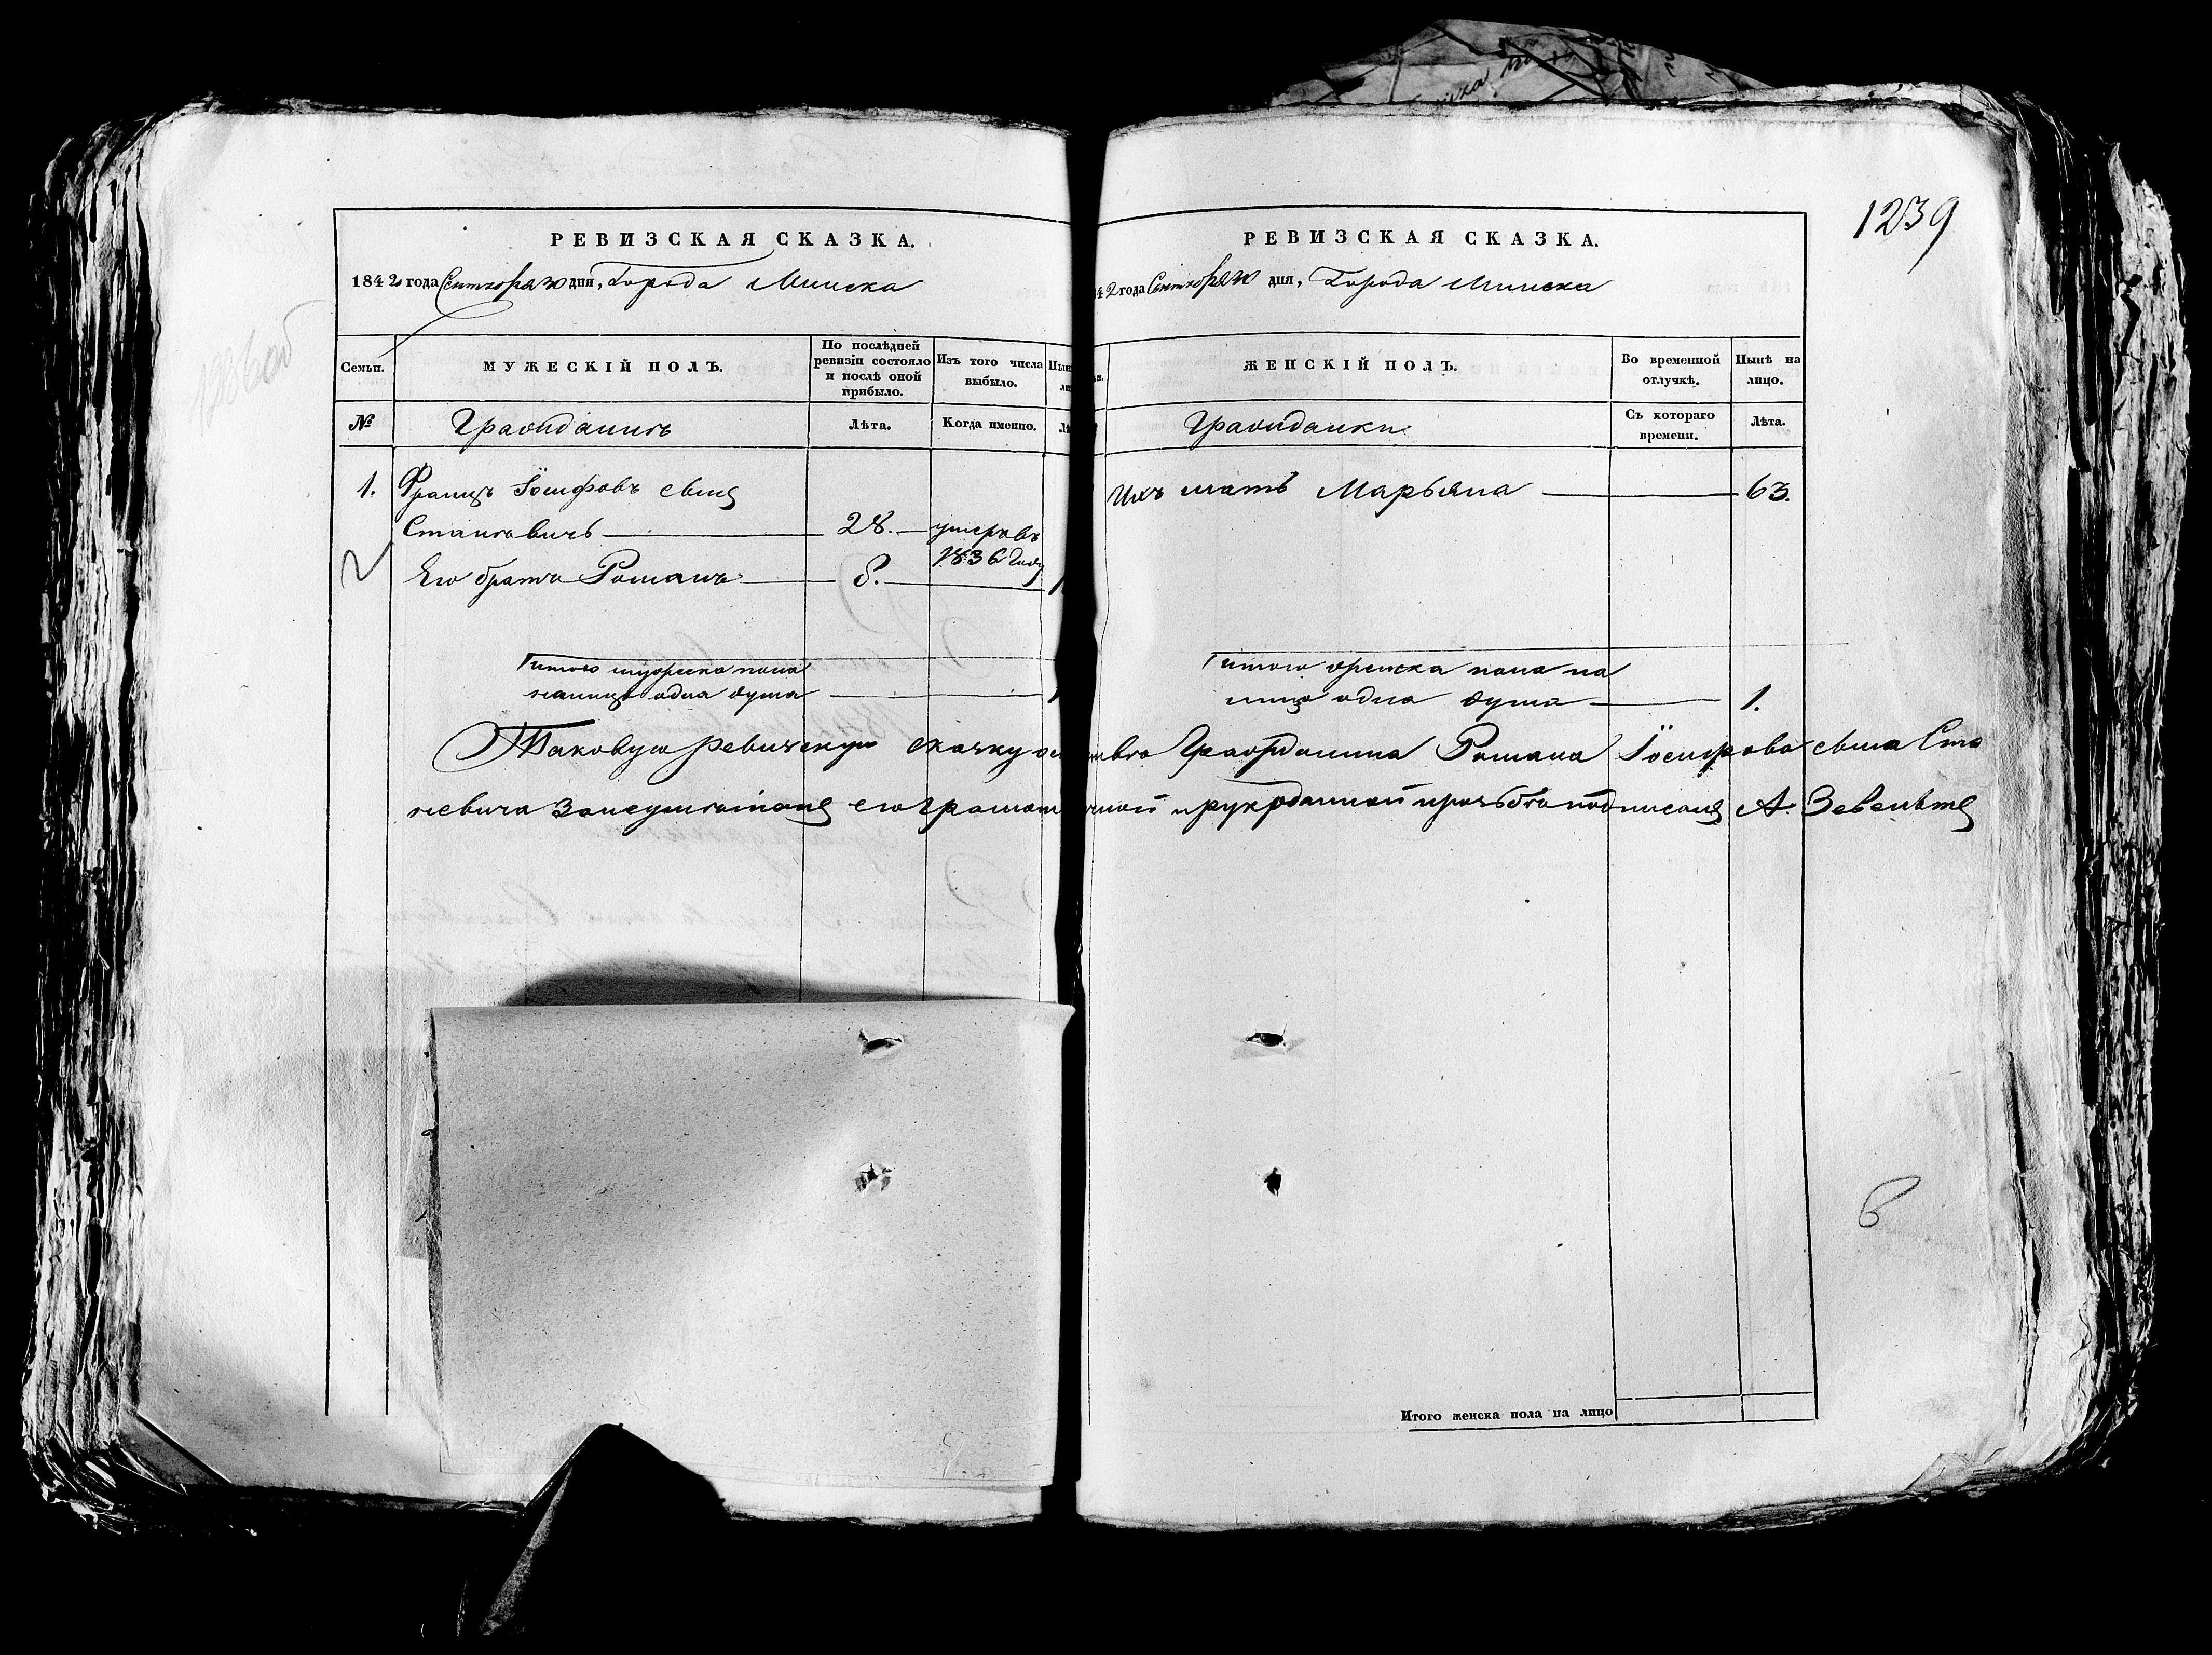 1239
РЕВИЗСКАЯ СКАЗКА.
1842 года Сентября 30 дня, Города Минска
Семьи.
МУЖЕСКІЙ ПОЛЪ.
По послѣдней ревизіи состояло и послѣ оной прибыло.
Изъ того числа выбыло.
№
Гражданинъ
Лѣта.
Когда именно.
1. Францъ Іосифовъ сынъ
Станкевичъ 28. умеръ въ
1836 году
Его братъ Романъ 8.
Итого мужеска пола
налицо одна душа
РЕВИЗСКАЯ СКАЗКА.
42 года Сентября 30 дня, Города Минска
ЖЕНСКІЙ ПОЛЪ.
Во временной отлучкѣ.
Нынѣ на лицо.
Гражданки
Съ котораго времени.
Лѣта.
Ихъ мать Марьяна 63.
Итого женска пола на
лицо одна душа 1.
Таковую ревизскую сказку гражданина Романа Іосифова сына Ста
невича его прозьбе подписалъ А.
Итого женска пола на лицо